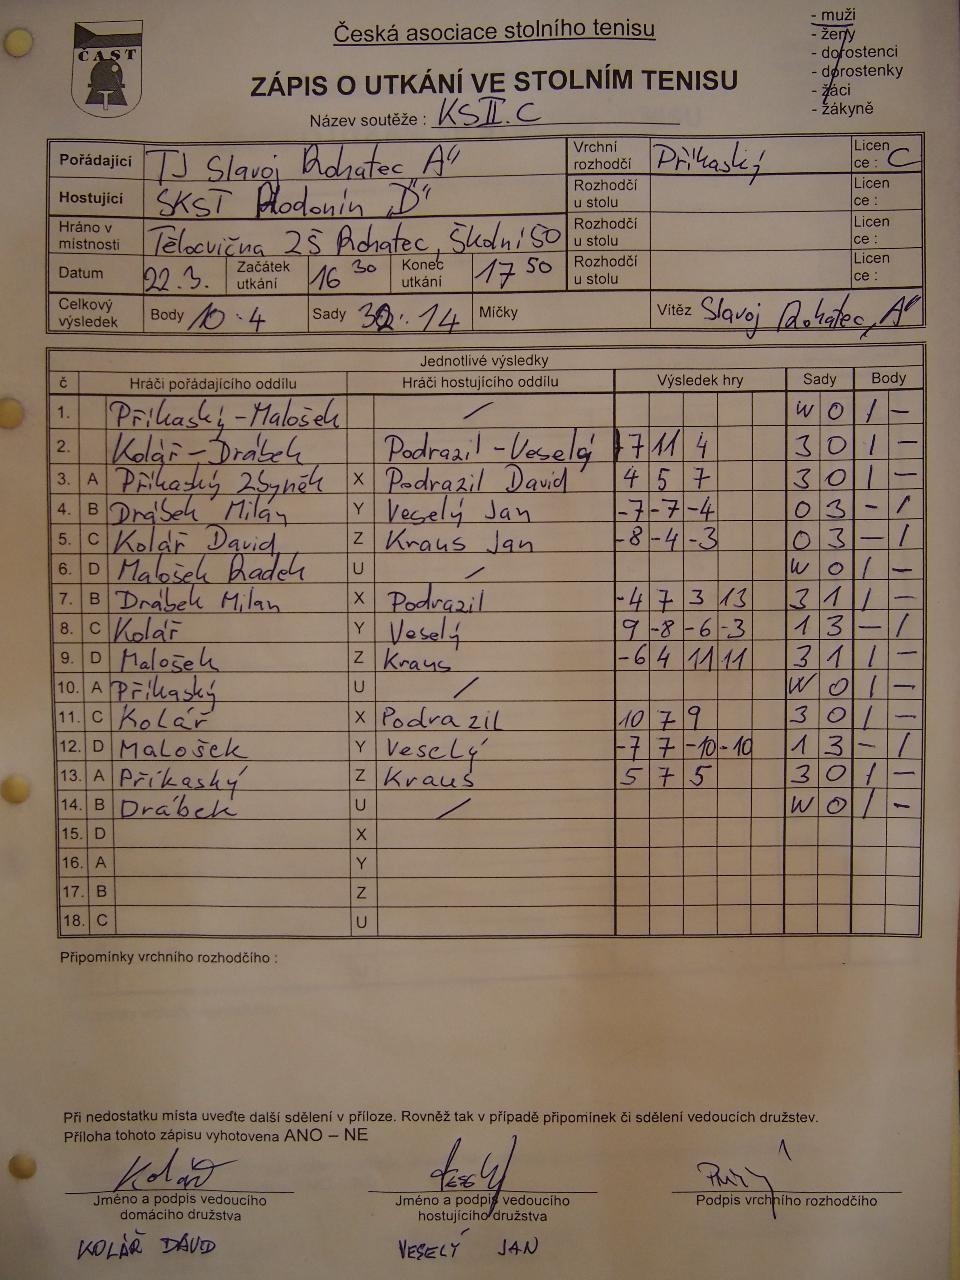 ČAST
Česká asociace stolního tenisu
ZÁPIS O UTKÁNÍ VE STOLNÍM TENISU
Název soutěže : KSII.C
- muži
- ženy
- dorostenci
- dorostenky
- žáci
- zákyně
Pořádající TJ Slavoj Rohatec „A" Vrchní rozhodčí Příkaský Licence : C
Hostující SKST Hodonín „D" Rozhodčí u stolu Licence :
Hráno v místnosti Tělocvična ZŠ Rohatec, Školní 50 Rozhodčí u stolu Licence :
Datum 22.3. Začátek utkání 16 30 Konec utkání 17 50 Rozhodčí u stolu Licence :
Celkový výsledek Body 10:4 Sady 32:14 Míčky Vítěz Slavoj Rohatec „A"
Jednotlivé výsledky
č Hráči pořádajícího oddílu Hráči hostujícího oddílu Výsledek hry Sady Body
1. Příkaský-Malošek / W 0 1 -
2. Kolář-Drábek Podrazil-Veselý 7 11 4 3 0 1 -
3. A Příkaský Zbyněk X Podrazil David 4 5 7 3 0 1 -
4. B Drábek Milan Y Veselý Jan -7 -7 -4 0 3 - 1
5. C Kolář David Z Kraus Jan -8 -4 -3 0 3 - 1
6. D Malošek Radek U / W 0 1 -
7. B Drábek Milan X Podrazil -4 7 3 13 3 1 1 -
8. C Kolář Y Veselý 9 -8 -6 -3 1 3 - 1
9. D Malošek Z Kraus -6 4 11 11 3 1 1 -
10. A Příkaský U / W 0 1 -
11. C Kolář X Podrazil 10 7 9 3 0 1 -
12. D Malošek Y Veselý -7 7 -10 -10 1 3 - 1
13. A Příkaský Z Kraus 5 7 5 3 0 1 -
14. B Drábek U / W 0 1 -
15. D X
16. A Y
17. B Z
18. C U
Připomínky vrchního rozhodčího :
Při nedostatku místa uveďte další sdělení v příloze. Rovněž tak v případě připomínek či sdělení vedoucích družstev.
Příloha tohoto zápisu vyhotovena ANO – NE
Kolář
Jméno a podpis vedoucího domácího družstva
Jméno a podpis vedoucího hostujícího družstva
Podpis vrchního rozhodčího
KOLÁŘ DAVID
VESELÝ JAN